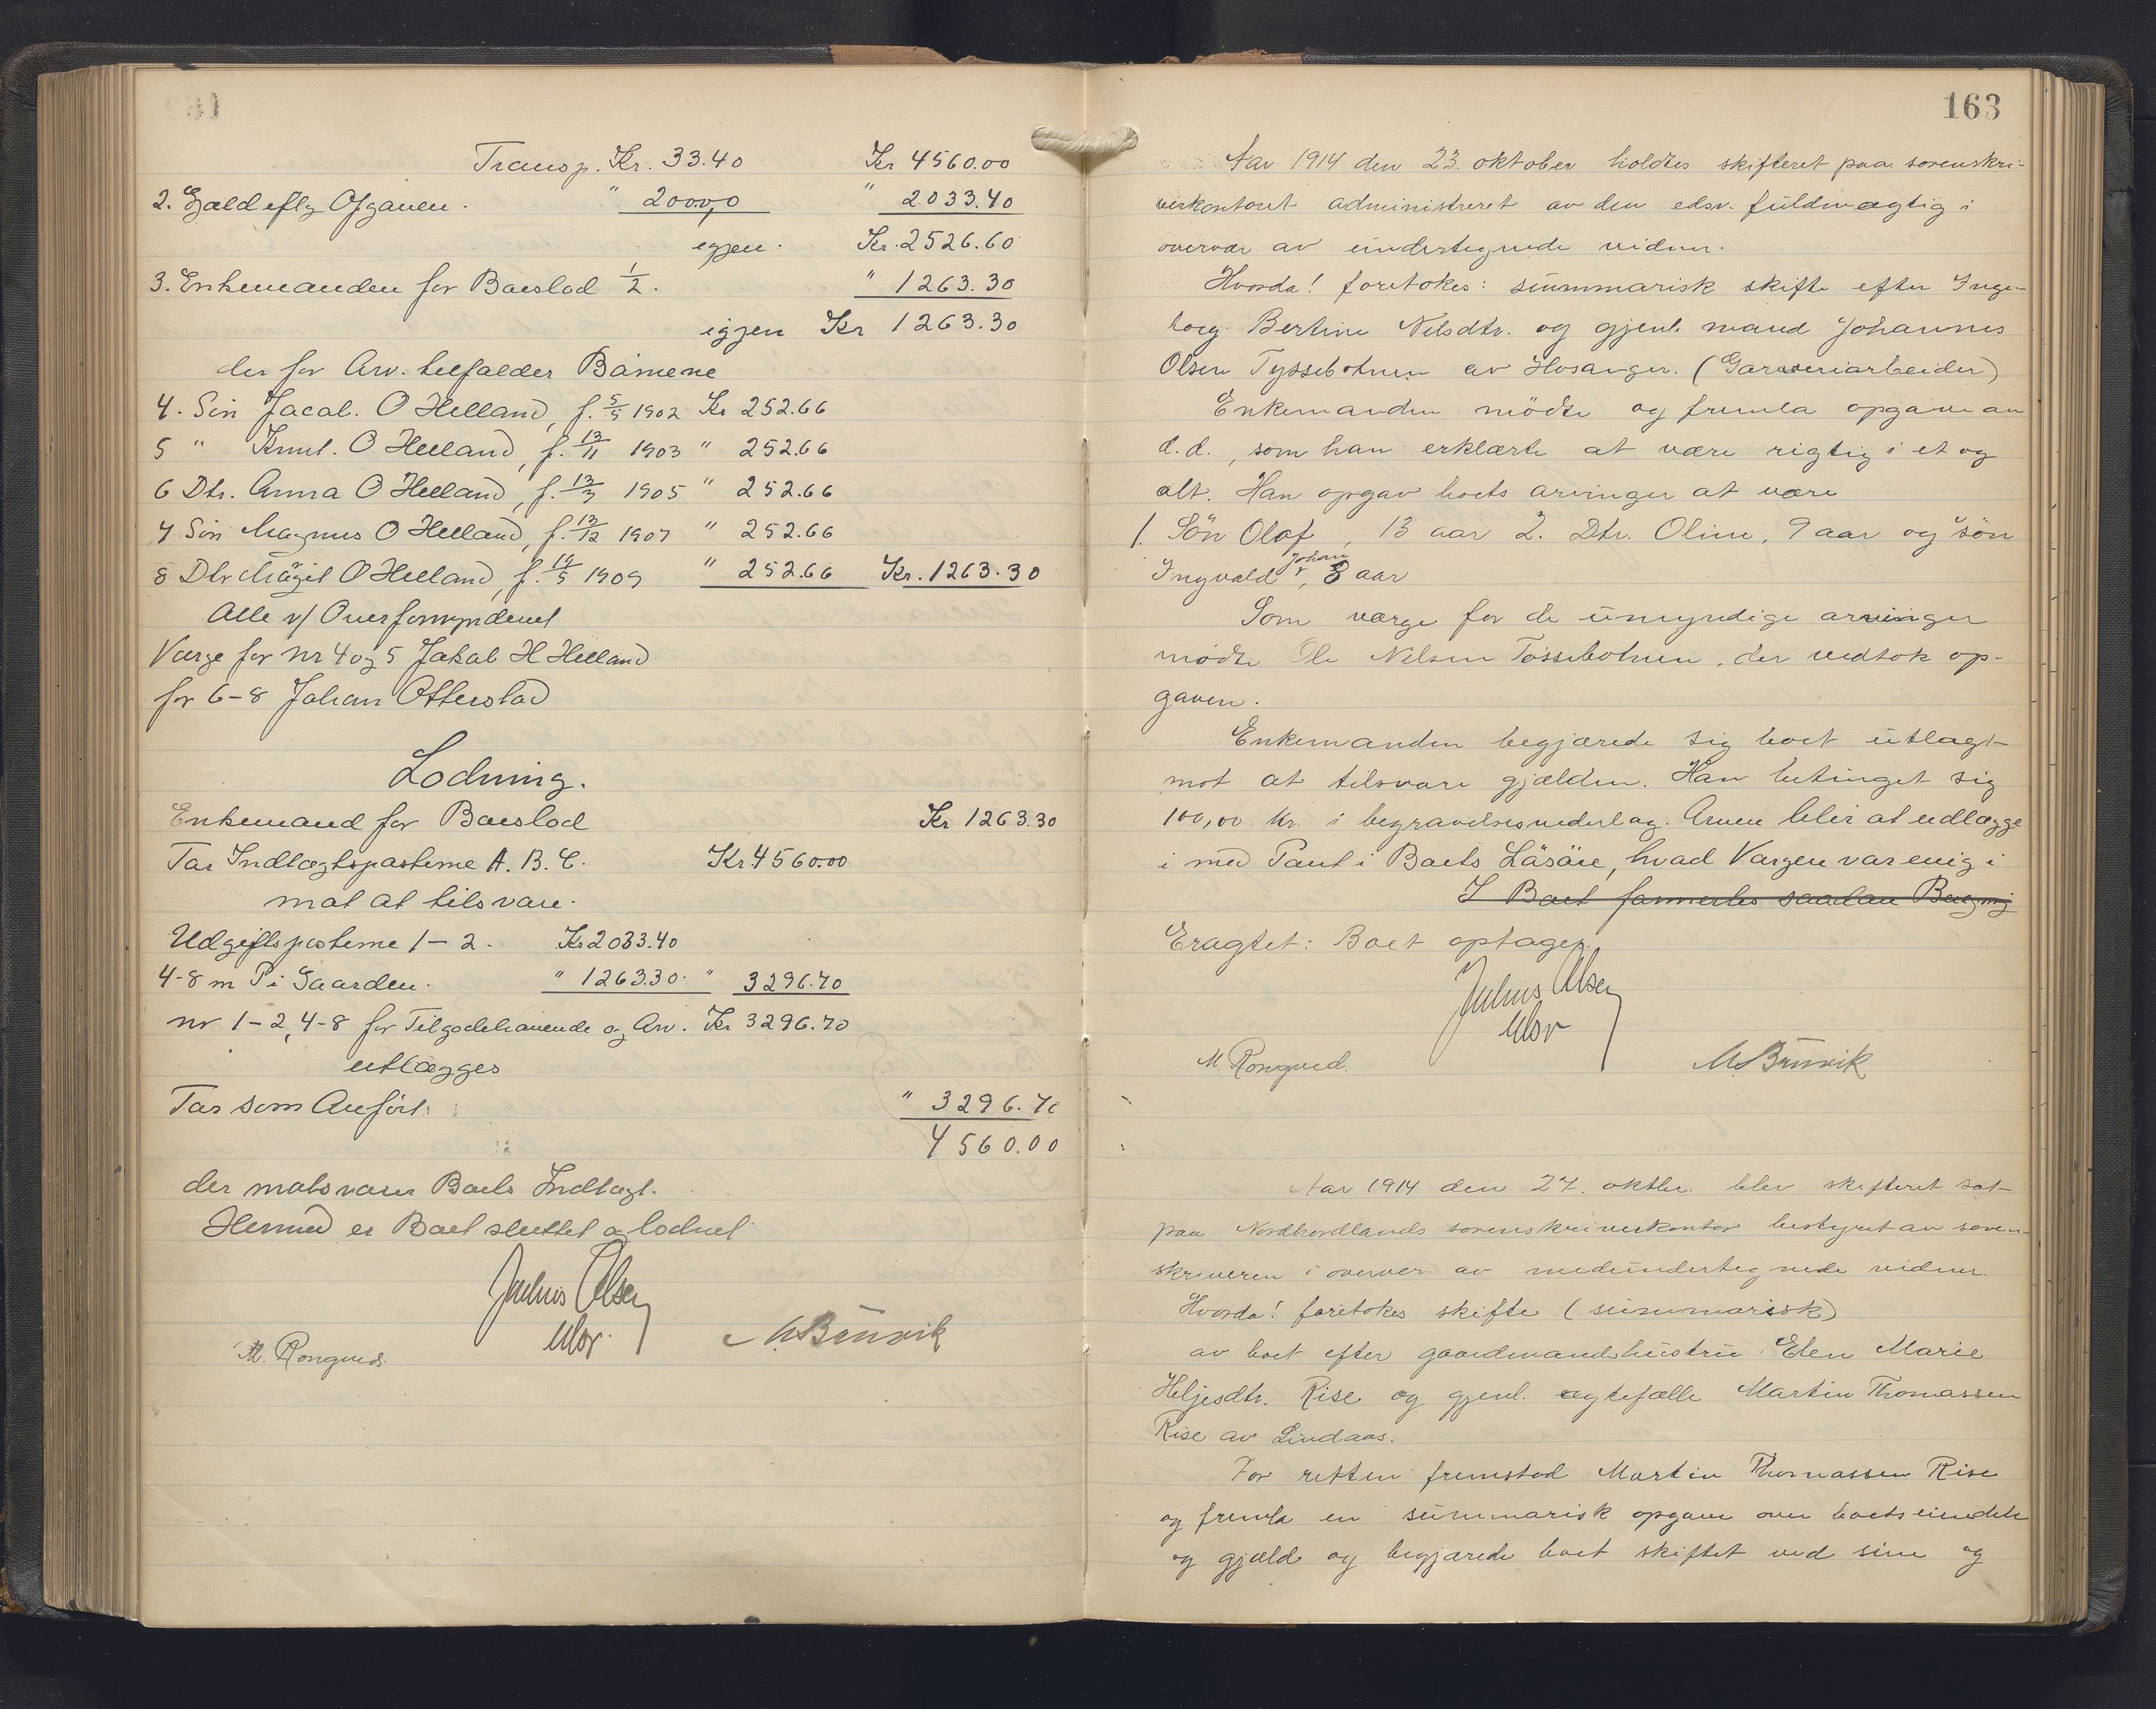 Transp. Kr. 33.40 Kr 4560.00
2. Gjæld eflg Opgaven. " 2000,0 " 2033.40
egjen. Kr. 2526.60
3. Enkemanden for Boeslod 1/2. " 1263.30
igjen Kr 1263.30
der for Arv. tilfalder Börnene
4. Sön Jacob. O Helland, f. 5/5 1902 Kr 252.66
5 " Knut. O Helland, f. 13/11 1903 " 252.66
6 Dtr. Anna O Helland, f. 12/3 1905 " 252.66
7 Sön Magnus O Helland, f. 13/12 1907 " 252.66
8 Dtr O Helland, f. 1909 " 252.66 Kr. 1263.30
Alle v/ Overformynderiet
Værge for nr 4 og 5 Jakob H Helland
for 6-8 Johan Otterstad
Lodning.
Enkemand for Boeslod Kr 1263.30
Tar Indtægtsposterne A. B. C. Kr 4560.00
mot at tilsvare.
Udgiftsposterne 1-2. Kr 2033.40
4-8 m P i Gaarden. " 1263.30. " 3296.70
nr 1-2, 4-8 for Tilgodehavende og Arv. Kr 3296.70
utlægges
Tar som Anfört. " 3296.70
4560.00
der motsvarer Boets Indtægt.
Hermed er Boet sluttet og loddet
Julius Olsen
M. Rongved. M Brunvik
163
Aar 1914 den 23. oktober holdtes skifteret paa sorenskri-
verkontoret administreret av den edsv. fuldmægtig i
overvær av undertegnede vidner.
Hvorda! foretokes: summarisk skifte efter Inge-
borg Bertine Nilsdtr. og gjenl. mand Johannes
Olsen Tyssebotnen av Hosanger. (Garveriarbeider)
Enkemanden mødte og fremla opgave av
d.d., som han erklærte at være rigtig i et og
alt. Han opgav boets arvinger at være
1. Sön Olaf, 13 aar 2. Dtr. Oline, 9 aar og 3 sön
Ingvald Johan, 8 aar
Som værge for de umyndige arvinger
mødte Ole Nilsen Tössebotnen, der vedtok op-
gaven.
Enkemanden begjærede sig boet utlagt
mot at tilsvare gjælden. Han betinget sig
100,00 kr. i begravelsesvederlag. Arven blir at udlægge
i med Pant i Boets Lösöre, hvad Værgen var enig i
I Boet saadan
Eragtet: Boet optages.
Julius Olsen
M. Rongved. M Brunvik
Aar 1914 den 27. oktbr. blev skifteret sat
paa Nordhordlands sorenskriverkontor bestyret av soren-
skriveren i overvær av medundertegnede vidner.
Hvorda! foretokes skifte (summarisk)
av boet efter gaardmandshustru Elen Marie
Heljesdtr. Rise og gjenl. ægtefælle Martin Thomassen
Rise av Lindaas.
For retten fremstod Martin Thomassen Rise
og fremla en summarisk opgave over boets eiendele
og gjæld og begjærede boet skiftet ved sine og